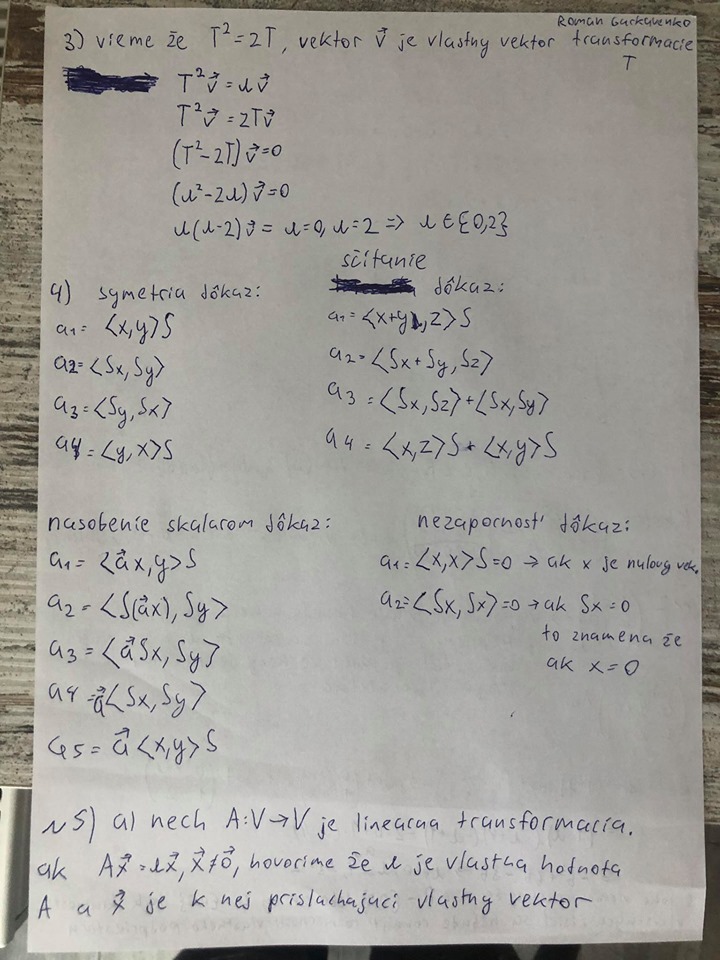 Roman Garkavenko
3) vieme že T² = 2T, vektor v⃗ je vlastny vektor transformacie
T
T²v⃗ = λv⃗
T²v⃗ = 2Tv⃗
(T²-2T)v⃗=0
(λ²-2λ)v⃗=0
λ(λ-2)v⃗ = λ=0, λ=2 => λ∈{0,2}
4) symetria dôkaz:
a1 = <x,y>S
a2 = <Sx, Sy>
a3 = <Sy, Sx>
a4 = <y, x>S
sčitanie
dôkaz:
a1 = <x+y, z>S
a2 = <Sx + Sy, Sz>
a3 = <Sx, Sz> + <Sx, Sy>
a4 = <x,z>S + <x,y>S
nasobenie skalarom dôkaz:
a1 = <a⃗x, y>S
a2 = <S(a⃗x), Sy>
a3 = <a⃗Sx, Sy>
a4 = a⃗<Sx, Sy>
a5 = a⃗<x,y>S
nezapornosť dôkaz:
a1 = <x,x>S=0 → ak x je nulovy vek.
a2 = <Sx, Sx>=0 → ak Sx=0
to znamena že
ak x=0
5) a) nech A:V→V je linearna transformacia.
ak Ax⃗ = λx⃗, x⃗≠0⃗, hovorime že λ je vlastna hodnota
A a x⃗ je k nej prisluchajuci vlastny vektor